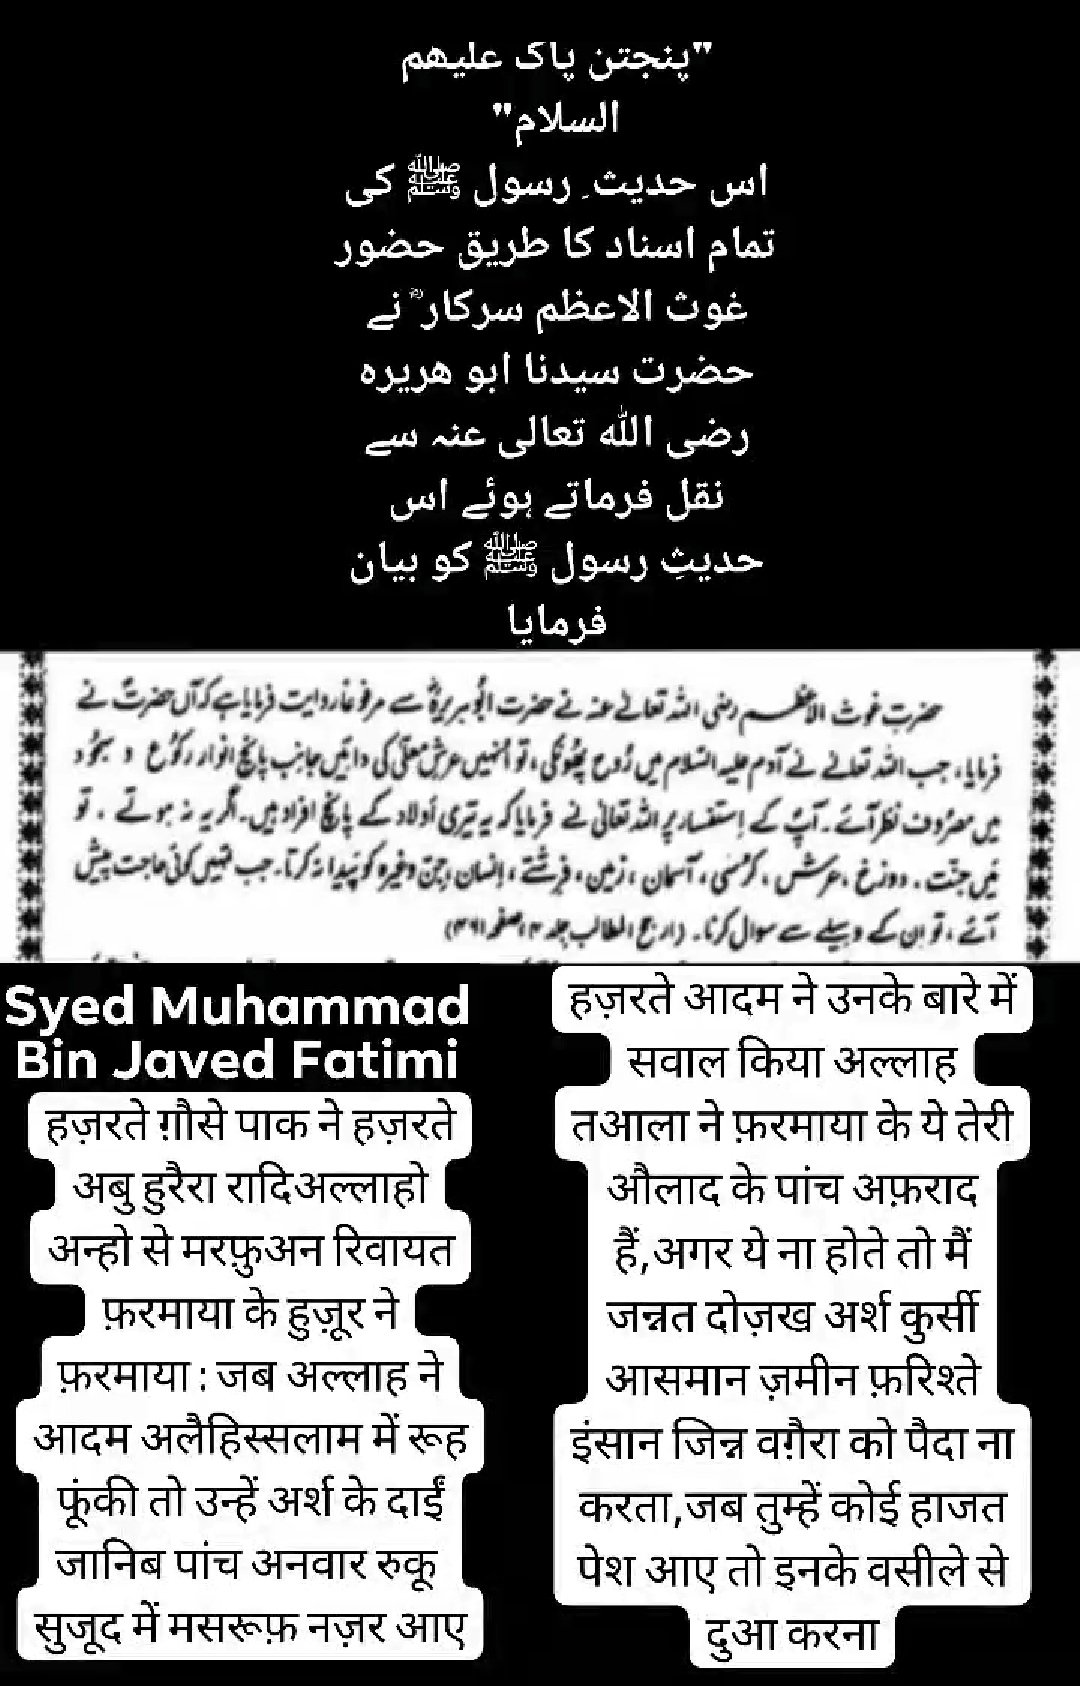 "پنجتن پاک علیهم
السلام"
اس حدیث ِ رسول ﷺ کی
تمام اسناد کا طریق حضور
غوث الاعظم سرکار ؓ نے
حضرت سیدنا ابو هریرہ
رضی اللہ تعالی عنہ سے
نقل فرماتے ہوئے اس
حدیثِ رسول ﷺ کو بیان
فرمایا
حضرت غوث الاعظم رضی اللہ تعالےٰ عنہ نے حضرت ابوہریرہؓ سے مرفوعاً روایت فرمایا ہے کہ آں حضرتؐ نے
فرمایا، جب اللہ تعالےٰ نے آدم علیہ السلام میں رُوح پھُونکی، تو اُنہیں عرشِ معلّٰی کی دائیں جانب پانچ انوار رکوُع و سجوُد
میں مصرُوف نظر آئے۔ آپؑ کے اِستفسار پر اللہ تعالیٰ نے فرمایا کہ یہ تیری اَولاد کے پانچ افراد ہیں۔ اگر یہ نہ ہوتے ۔ تو
مَیں جنّت ، دوزخ ، عرش ، کُرسی ، آسمان ، زمین ، فرشتے ، اِنسان ، جِنّ وغیرہ کو پَیدا نہ کرتا۔ جب تمہیں کوئی حاجت پیش
آئے ، تو اِن کے وسیلے سے سوال کرنا۔ (ارجح المطالب جلد ۳، صفحہ ۴۶۱)
Syed Muhammad
Bin Javed Fatimi
हज़रते ग़ौसे पाक ने हज़रते
अबु हुरैरा रादिअल्लाहो
अन्हो से मरफ़ुअन रिवायत
फ़रमाया के हुज़ूर ने
फ़रमाया : जब अल्लाह ने
आदम अलैहिस्सलाम में रूह
फूंकी तो उन्हें अर्श के दाईं
जानिब पांच अनवार रुकू
सुजूद में मसरूफ़ नज़र आए
हज़रते आदम ने उनके बारे में
सवाल किया अल्लाह
तआला ने फ़रमाया के ये तेरी
औलाद के पांच अफ़राद
हैं,अगर ये ना होते तो मैं
जन्नत दोज़ख अर्श कुर्सी
आसमान ज़मीन फ़रिश्ते
इंसान जिन्न वग़ैरा को पैदा ना
करता,जब तुम्हें कोई हाजत
पेश आए तो इनके वसीले से
दुआ करना